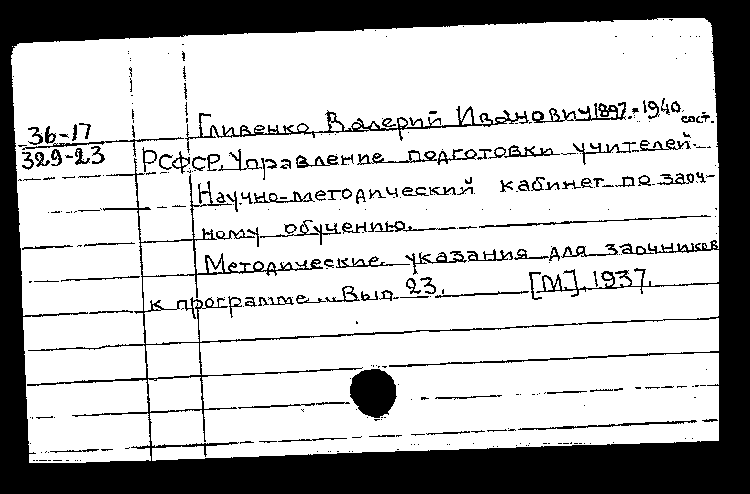 36-17
329-23
Гливенко, Валерий Иванович 1897-1940 сост.
РСФСР. Управление подготовки учителей.
Научно-методический кабинет по заоч-
ному обучению.
Методические указания для заочников
к программе... Вып 23. [М], 1937.